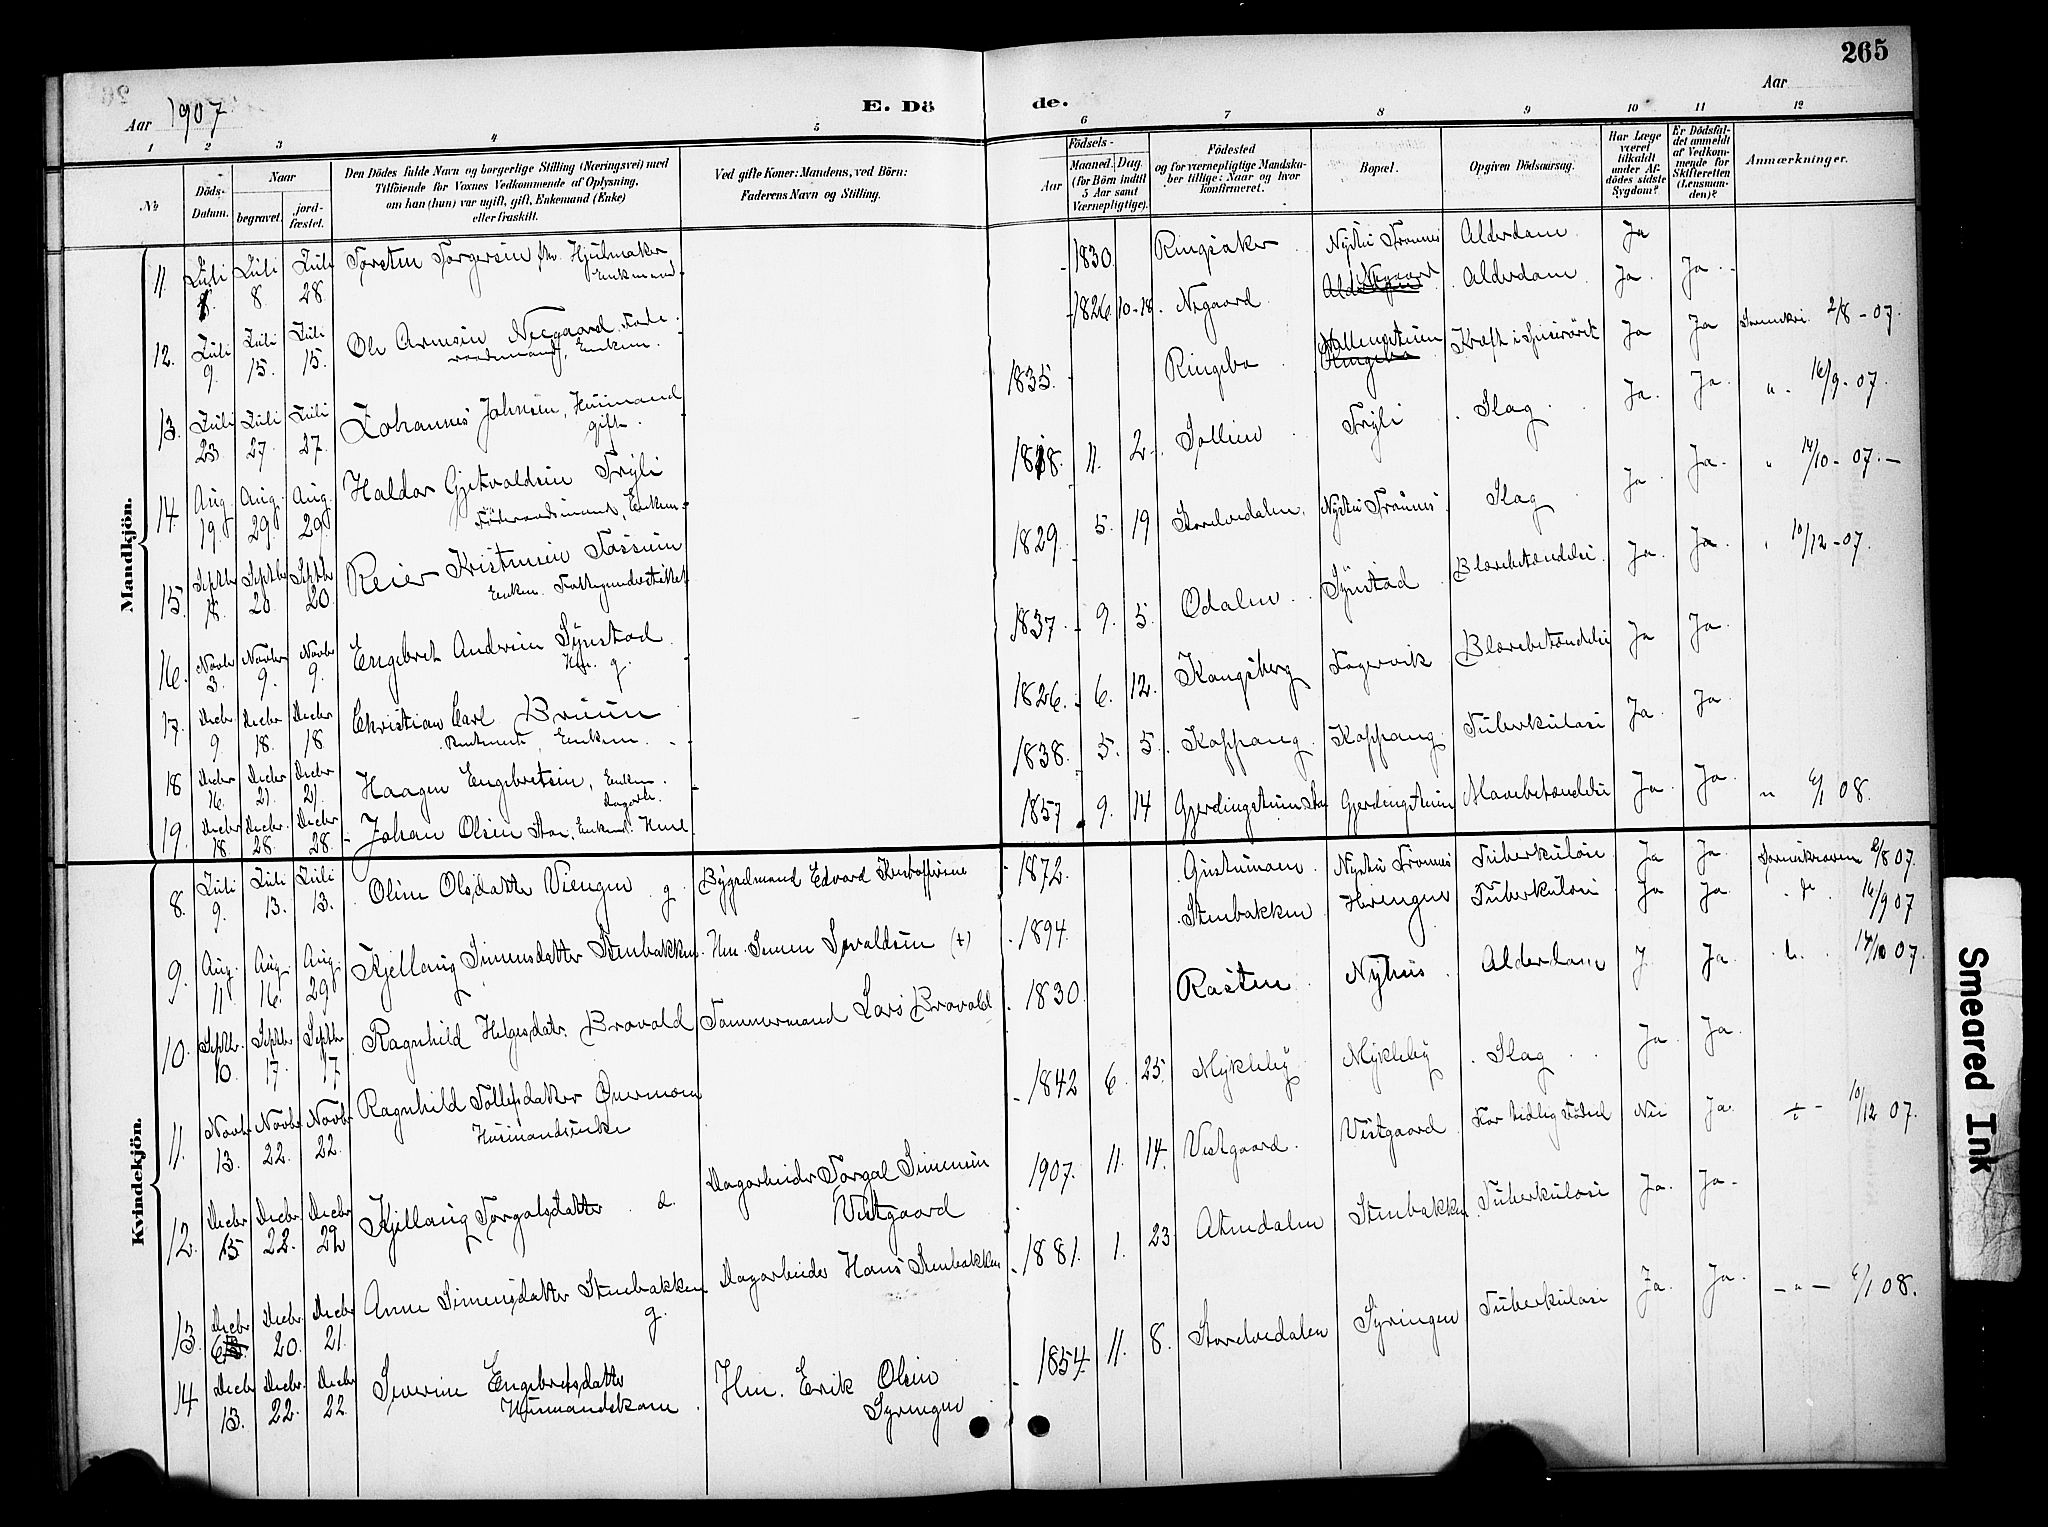 265
Aar 1907
E. Dö de.
Aar
1 2 3 4 5 6 7 8 9 10 11 12
No.
Döds-Datum.
Naar
begravet.
jord-fæstet.
Den Dödes fulde Navn og borgerlige Stilling (Næringsvei) med
Tilföiende for Voxnes Vedkommende af Oplysning,
om han (hun) var ugift, gift, Enkemand (Enke)
eller fraskilt.
Ved gifte Koner: Mandens, ved Börn:
Faderens Navn og Stilling.
Födsels-
Aar
Maaned. Dag.
(for Börn indtil
5 Aar samt
Værnepligtige).
Födested
og for værnepligtige Mandska-
ber tillige: Naar og hvor
konfirmeret.
Bopæl.
Opgiven Dödsaarsag.
Har Læge
været
tilkaldt
under Af-
dödes sidste
Sygdom?
Er Dödsfal-
det anmeldt
af Vedkom-
mende for
Skifteretten
(Lensman-
den)?
Anmærkninger.
Mandkjön.
11. Juli Juli 8. Juli 28 Torsten Torgersen Hjulmaker Enkemand 1830. Ringsaker Alderdom Ja
12. Juli 9. Juli 15. Juli 15. Ole Arnesen Negaard Enkem. 1826 10-18. Negaard Alderdom Ja. Ja.
13. Juli 23 Juli 27 Juli 27. Johannes Johnsen, Husmand gift. 1835. Ringebo Kræft i Spiserøret Ja Ja 2/8-07.
14. Aug. 19. Aug. 29. Aug. 29. Haldor Tryli Enkem. 1818. 11. 2. Sollien Tryli Slag Ja. Ja. " 16/9-07.
15. Septbr 18. Septbr 20. Septbr 20. Reier Kristensen Fossum Enkem. 1829. 5. 19 Storelvedalen Slag Ja. Ja. " 14/10-07.
16. Novbr 3. Novbr 9. Novbr 9. Engebret Andersen Synstad Hm. g. 1837. 9. 5. Odalen Synstad Blærebetændelse Ja. Ja. " 10/12-07.
17. Decbr 9. Decbr 18. Decbr 18 Christian Carl Bruun Enkem. 1826. 6. 12. Kongsberg Fagervik Blærebetændelse Ja Ja.
18 Decbr 16. Decbr 21. Decbr 21. Haagen Engebretsen, Enkem. Dagarb. 1838. 5. 5. Koppang Koppang Tuberkulose Ja. Ja.
19. Decbr 18. Decbr 28. Decbr 28. Johan Olsen Stai, Enkem. 1857. 9. 14 Mavebetændelse Ja. Ja. " 6/1 08.
Kvindekjön.
8. Juli 9. Juli 13. Juli Juli 13. Oline Olsdatter Viengen g. Bygselmand Edvard 1872. Tuberkulose Ja Ja. 2/8 07.
9. Aug. 11 Aug. 16. Aug. 29 Kjellaug Simensdatter Stenbakken Hm. Simen (+) 1894. Stenbakken Tuberkulose Ja Ja. 16/9 07
10. Septbr. 10. Septbr 17. Septbr 17 Ragnhild Helgesdatr. Brovold Tømmermand Lars Brovold 1830. Rasten Nyhus Alderdom J. Ja. 14/10 07.
11. Novbr 13. Novbr 22. Novbr 22. Ragnhild Tollefsdatter Øvermoen Husmandsenke 1842 6. 25. Mykleby Mykleby Slag Ja. Ja.
12. Decbr 15 Decbr. 22. Decbr 22 Kjellaug Torgalsdatter Dagarbeider Torgal Simensen Vestgaard 1907. 11. 14. Vestgaard Vestgaard For tidlig Fødsel Nei Ja. 10/12 07.
13. Decbr Decbr. 20. Decbr 21. Anne Simensdatter Stenbakken g. Dagarbeider Hans Stenbakken 1881. 1. 23 Atnedalen Stenbakken Tuberkulose Ja. Ja.
14 Decbr 13. Decbr. 22. Decbr 22. Severine Engebretsdatter Husmandskone Hm. Erik Olsen Syringen 1854. 11. 8. Storelvedalen Syringen Tuberkulose Ja. Ja. - " - 6/1 08.
Smeared Ink